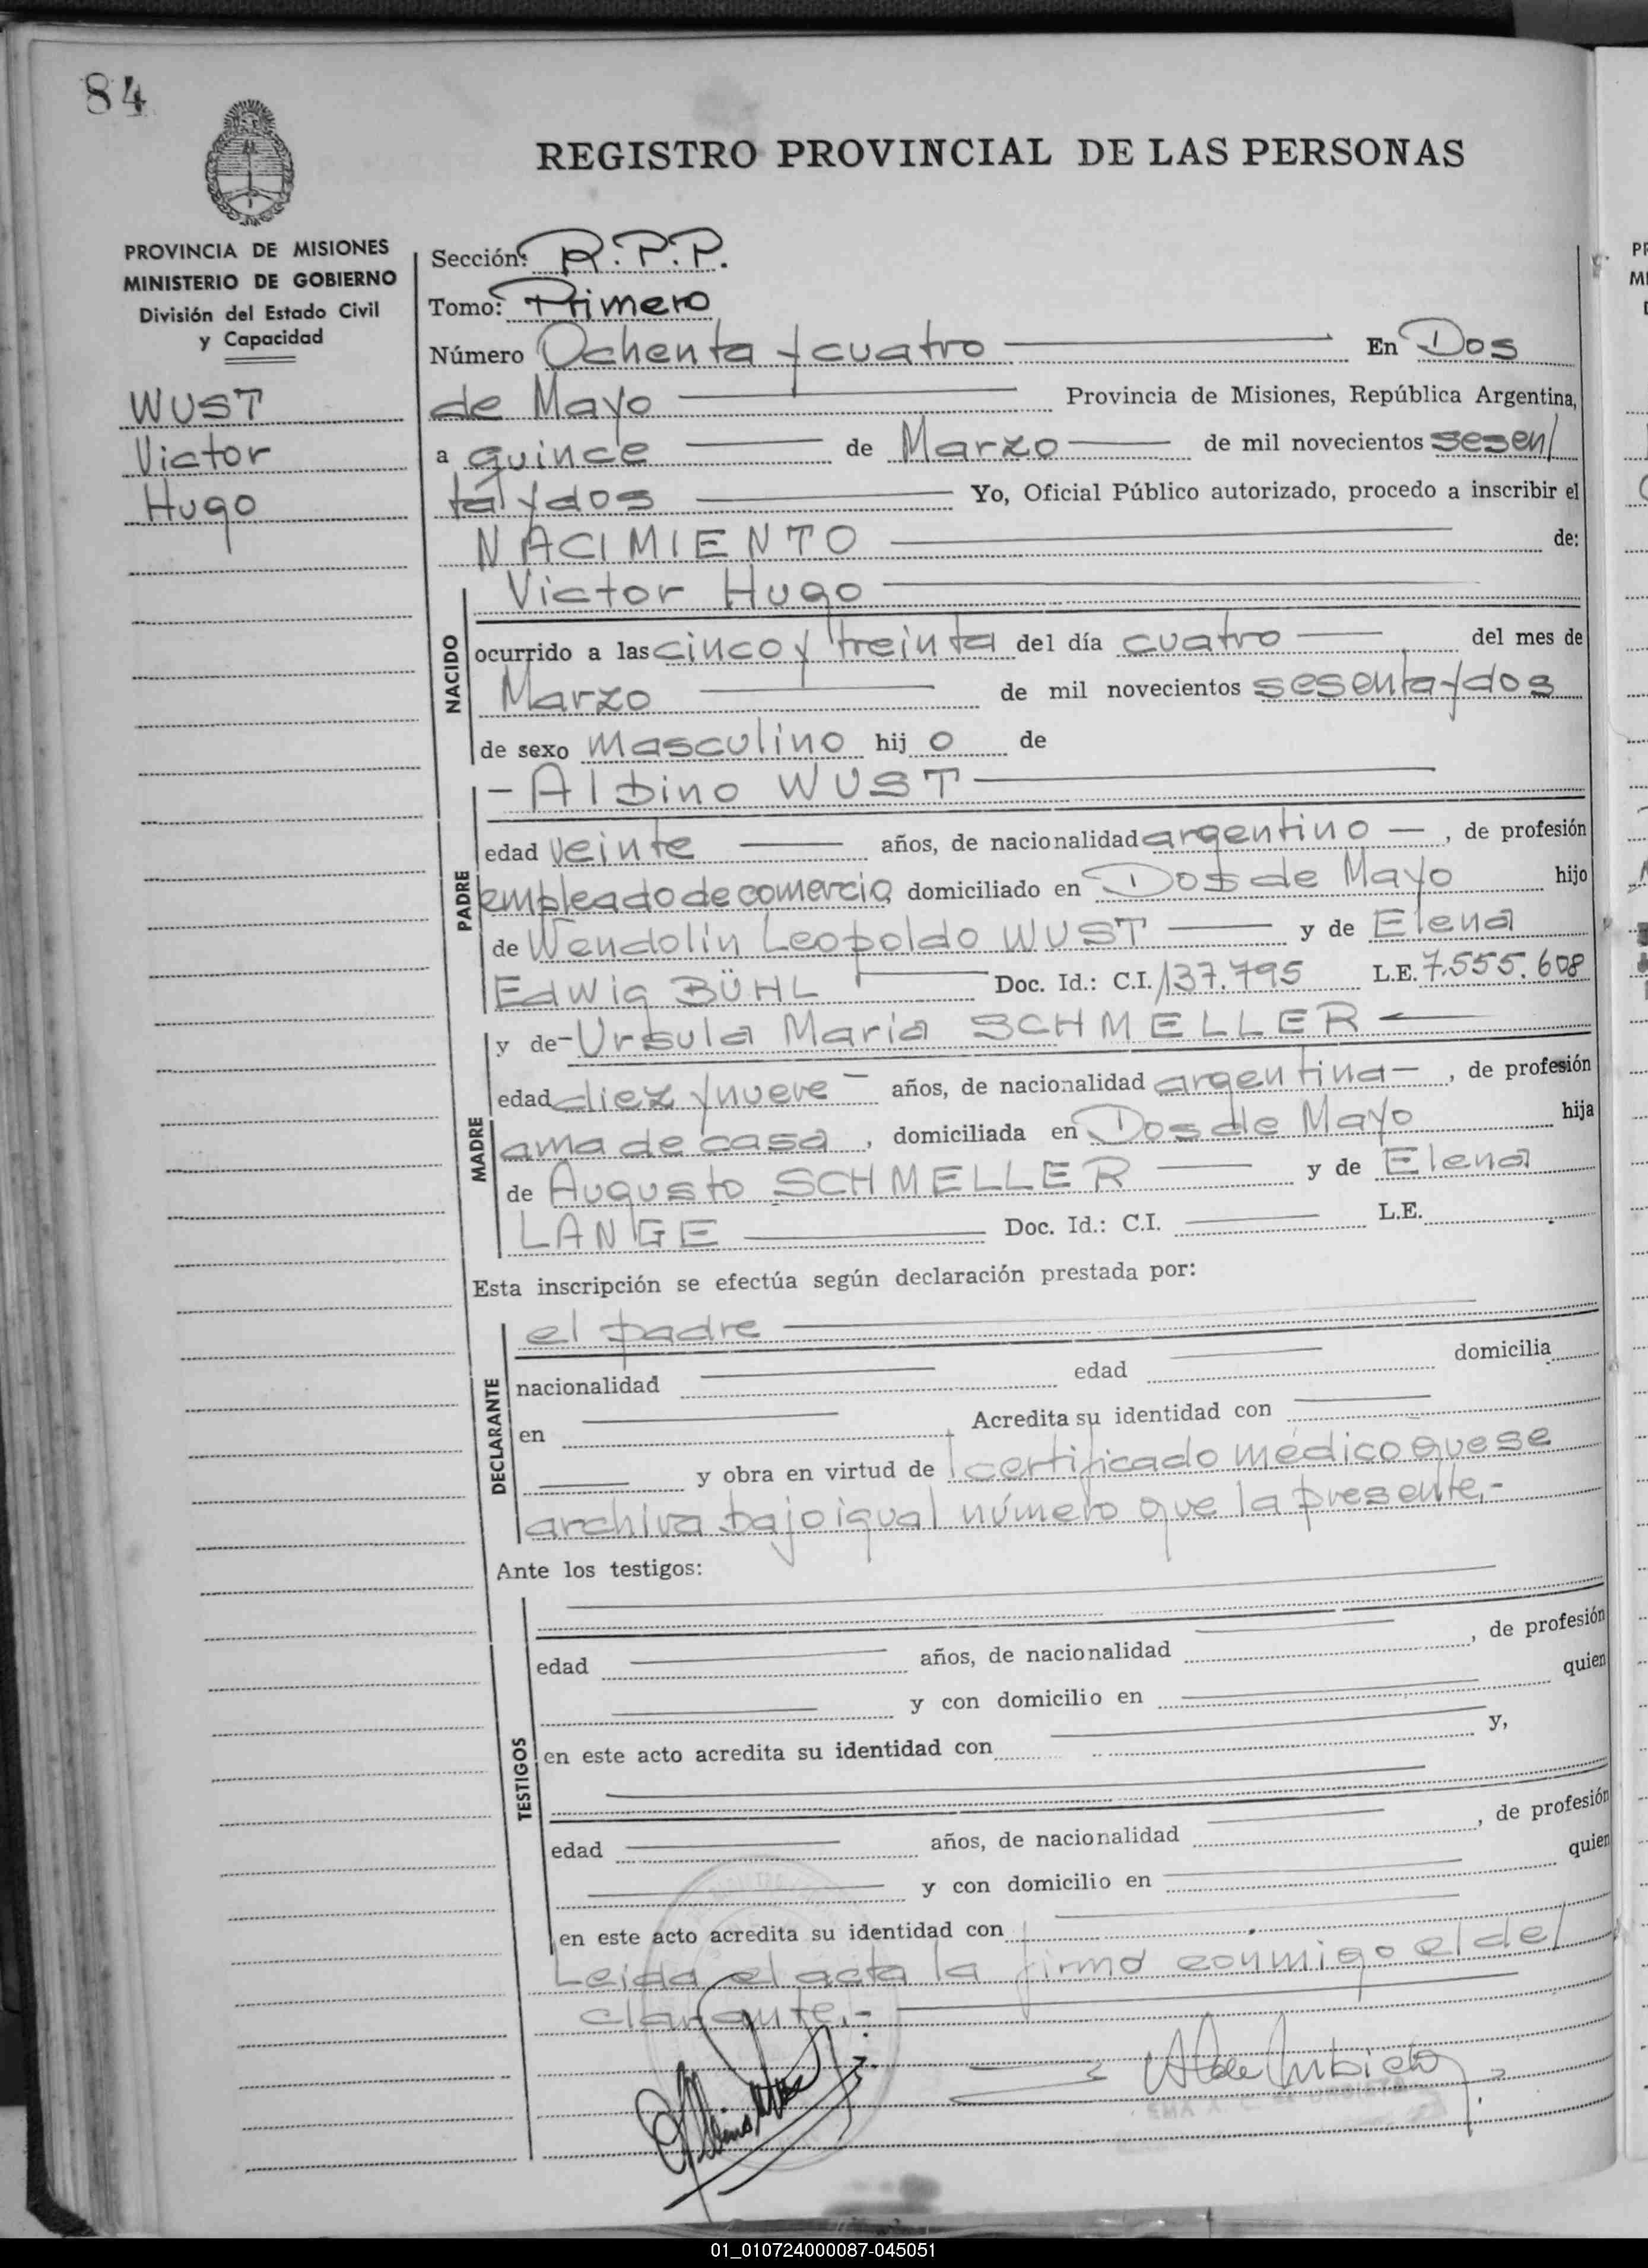 84
REGISTRO PROVINCIAL DE LAS PERSONAS
PROVINCIA DE MISIONES
MINISTERIO DE GOBIERNO
División del Estado Civil
y Capacidad
WUST
Victor
Hugo
Sección: R.P.P.
Tomo: Primero
Número Ochenta y cuatro En Dos
de Mayo Provincia de Misiones, República Argentina,
a quince de Marzo de mil novecientos sesen/
ta y dos Yo, Oficial Público autorizado, procedo a inscribir el
NACIMIENTO de:
NACIDO
Victor Hugo
ocurrido a las cinco y treinta del día cuatro del mes de
Marzo de mil novecientos sesenta y dos
de sexo masculino hij o de
PADRE
- Albino WUST
edad veinte años, de nacionalidad argentino —, de profesión
empleado de comercio, domiciliado en Dos de Mayo hijo
de Wendolín Leopoldo WUST y de Elena
Edwig BÜHL Doc. Id.: C.I. 137.795 L.E. 7.555.608
MADRE
y de - Ursula Maria SCHMELLER
edad diez y nueve años, de nacionalidad argentina —, de profesión
ama de casa, domiciliada en Dos de Mayo hija
de Augusto SCHMELLER y de Elena
LANGE Doc. Id.: C.I. L.E.
Esta inscripción se efectúa según declaración prestada por:
DECLARANTE
el padre
nacionalidad edad domicilia
en Acredita su identidad con
y obra en virtud de certificado médico que se
archiva bajo igual número que la presente.-
Ante los testigos:
TESTIGOS
edad años, de nacionalidad , de profesión
y con domicilio en quien
en este acto acredita su identidad con y,
edad años, de nacionalidad , de profesión
y con domicilio en quien
en este acto acredita su identidad con
Leida el acta la firmó conmigo el de/
clarante.-
01_010724000087-045051